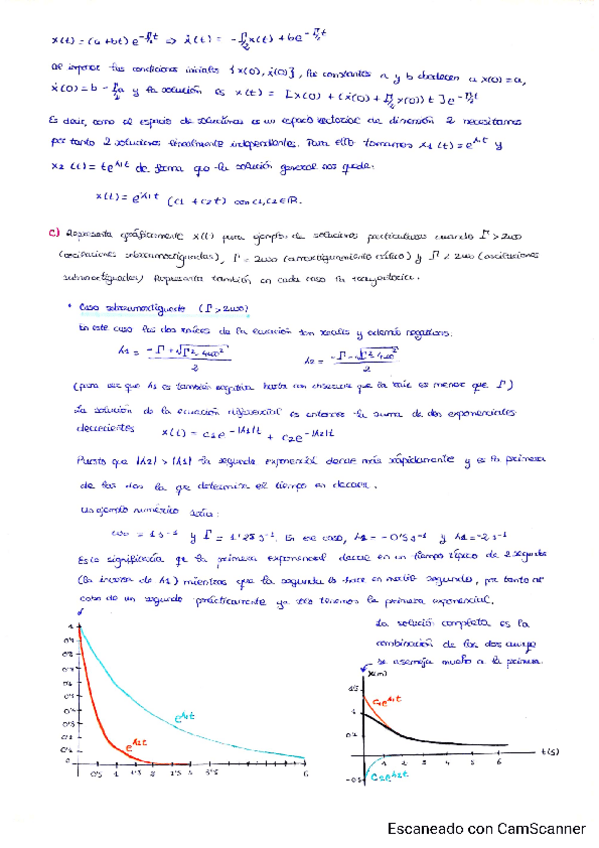 x(t) = (a+bt) e^{-Γ/2 t} ⇒ ẋ(t) = -Γ/2 x(t) + be^{-Γ/2 t}
Al imponer las condiciones iniciales {x(0), ẋ(0)}, las constantes a y b obedecen a x(0)=a,
ẋ(0) = b - Γ/2 a y la solución es x(t) = [x(0) + (ẋ(0) + Γ/2 x(0)) t] e^{-Γ/2 t}
Es decir, como el espacio de soluciones es un espacio vectorial de dimensión 2 necesitamos
por tanto 2 soluciones linealmente independientes. Para ello tomamos x1(t) = e^{λ1t} y
x2(t) = te^{λ1t} de forma que la solución general nos queda:
x(t) = e^{λ1t} (c1 + c2t) con c1, c2 ∈ R.
c) Representa gráficamente x(t) para ejemplos de soluciones particulares cuando Γ > 2ω0
(oscilaciones sobreamortiguadas), Γ = 2ω0 (amortiguamiento crítico) y Γ < 2ω0 (oscilaciones
subamortiguadas) Representa también en cada caso la trayectoria.
* Caso sobreamortiguado (Γ > 2ω0)
En este caso las dos raíces de la ecuación son reales y además negativas:
λ1 = -Γ + √Γ² - 4ω0² / 2 λ2 = -Γ - √Γ² - 4ω0² / 2
(para ver que λ1 es también negativa basta con observar que la raíz es menor que Γ)
La solución de la ecuación diferencial es entonces la suma de dos exponenciales
decrecientes x(t) = c1e^{-|λ1|t} + c2e^{-|λ2|t}
Puesto que |λ2| > |λ1| la segunda exponencial decae más rápidamente y es la primera
de las dos la que determina el tiempo en decaer.
Un ejemplo numérico sería:
ω0 = 1 s⁻¹ y Γ = 1'25 s⁻¹. En ese caso, λ1 = -0'5 s⁻¹ y λ2 = -2 s⁻¹
Esto significaría que la primera exponencial decae en un tiempo típico de 2 segundos
(la inversa de λ1) mientras que la segunda lo hace en medio segundo, por tanto al
cabo de un segundo prácticamente ya sólo tenemos la primera exponencial.
La solución completa es la
combinación de las dos
se asemeja mucho a la primera.
x(m)
c1e^{λ1t}
e^{λ1t}
e^{λ2t}
t(s)
c2e^{λ2t}
Escaneado con CamScanner